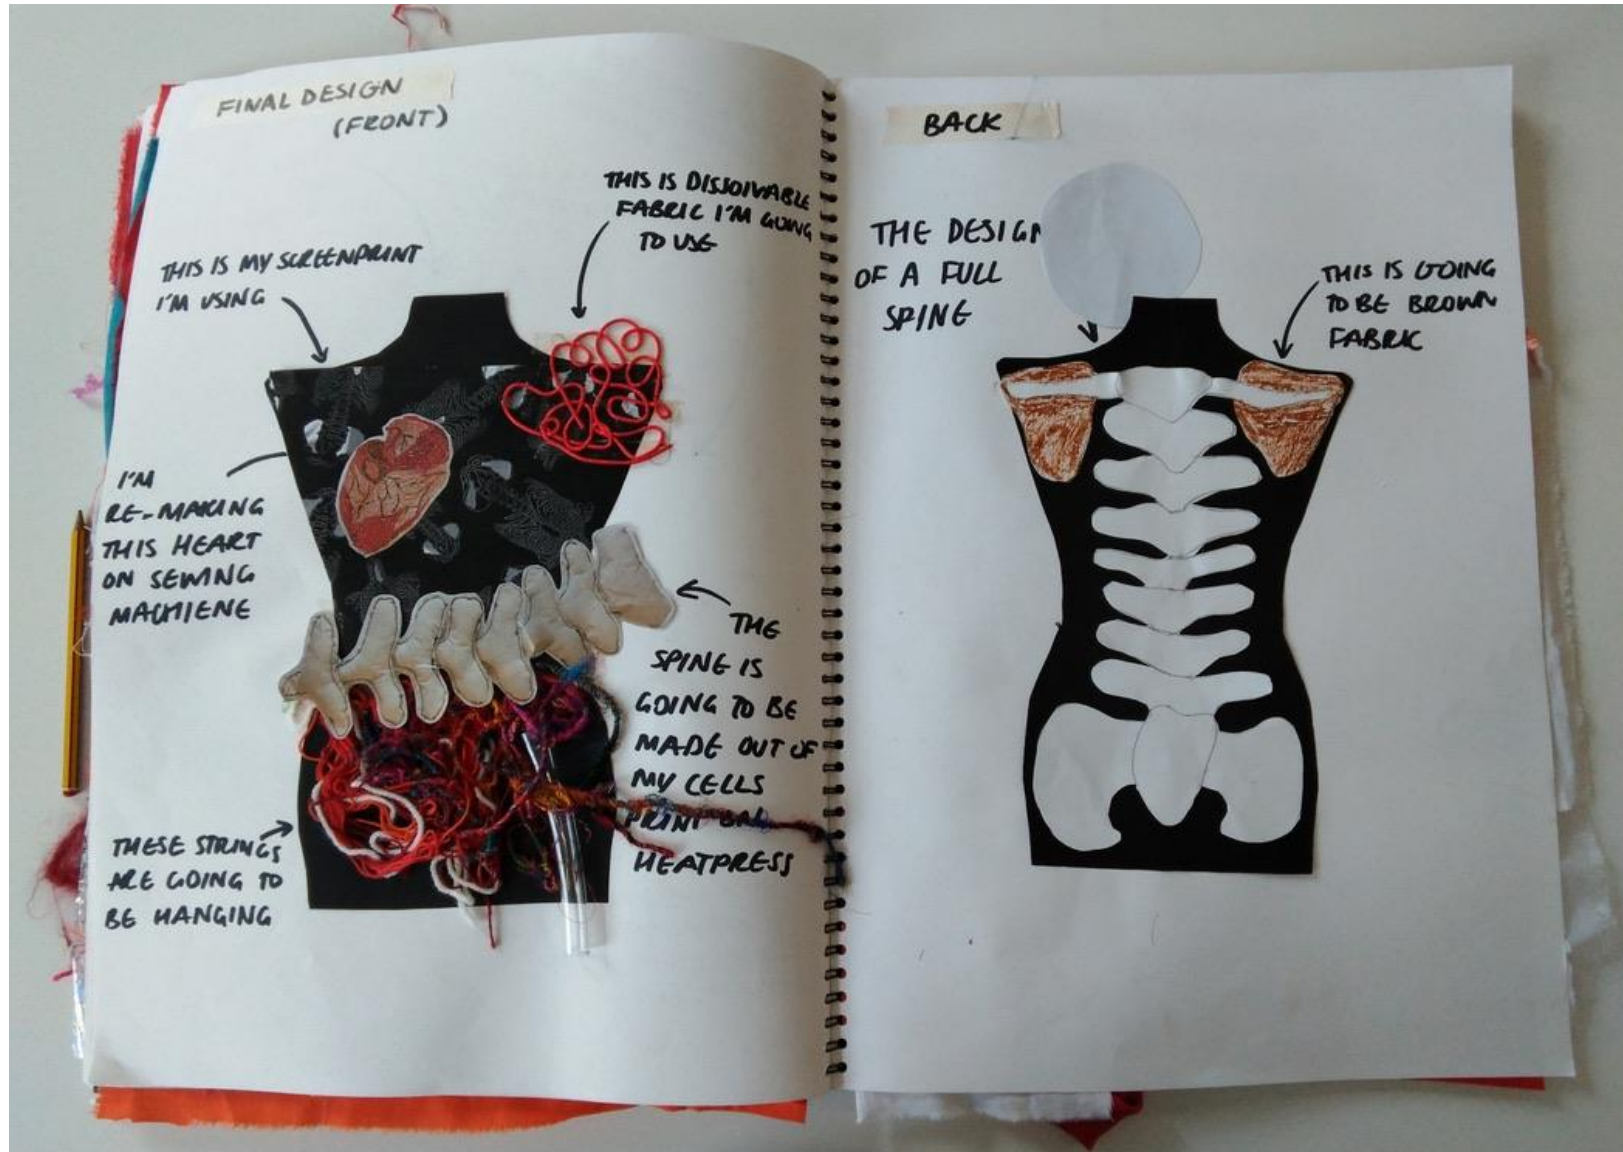 FINAL DESIGN
(FRONT)
THIS IS DISSOLVABLE
FABRIC I'M GOING
TO USE
THIS IS MY SCREENPRINT
I'M USING
I'M
RE-MAKING
THIS HEART
ON SEWING
MACHIENE
THE
SPINE IS
GOING TO BE
MADE OUT OF
MY CELLS
PRINT
HEATPRESS
THESE STRINGS
ARE GOING TO
BE HANGING
BACK
THE DESIGN
OF A FULL
SPINE
THIS IS GOING
TO BE BROWN
FABRIC